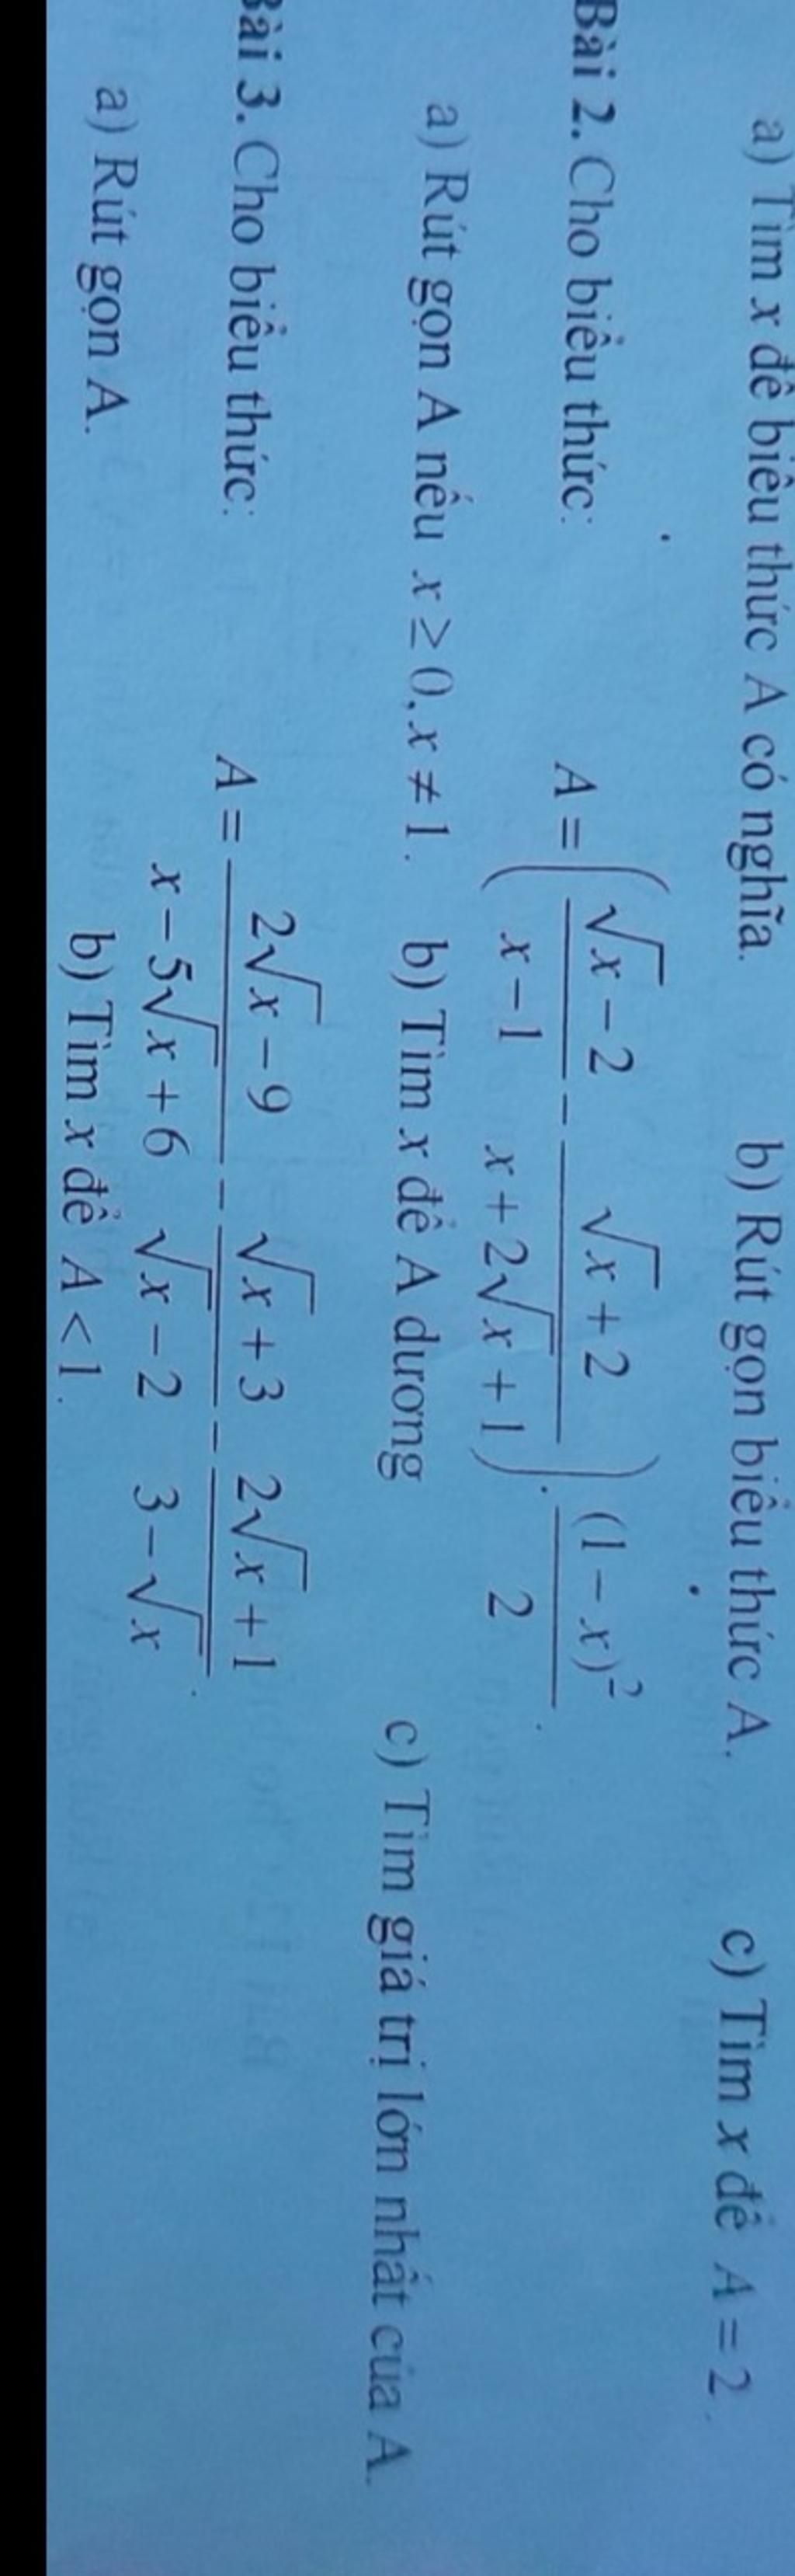 a) Tìm x để biểu thức A có nghĩa. b) Rút gọn biểu thức A. c) Tìm x để A = 2.
Bài 2. Cho biểu thức: A = ( (√x − 2)/(x − 1) − (√x + 2)/(x + 2√x + 1) ) . (1 − x)²/2 .
a) Rút gọn A nếu x ≥ 0, x ≠ 1. b) Tìm x để A dương c) Tìm giá trị lớn nhất của A.
Bài 3. Cho biểu thức: A = (2√x − 9)/(x − 5√x + 6) − (√x + 3)/(√x − 2) − (2√x + 1)/(3 − √x) .
a) Rút gọn A. b) Tìm x để A < 1.